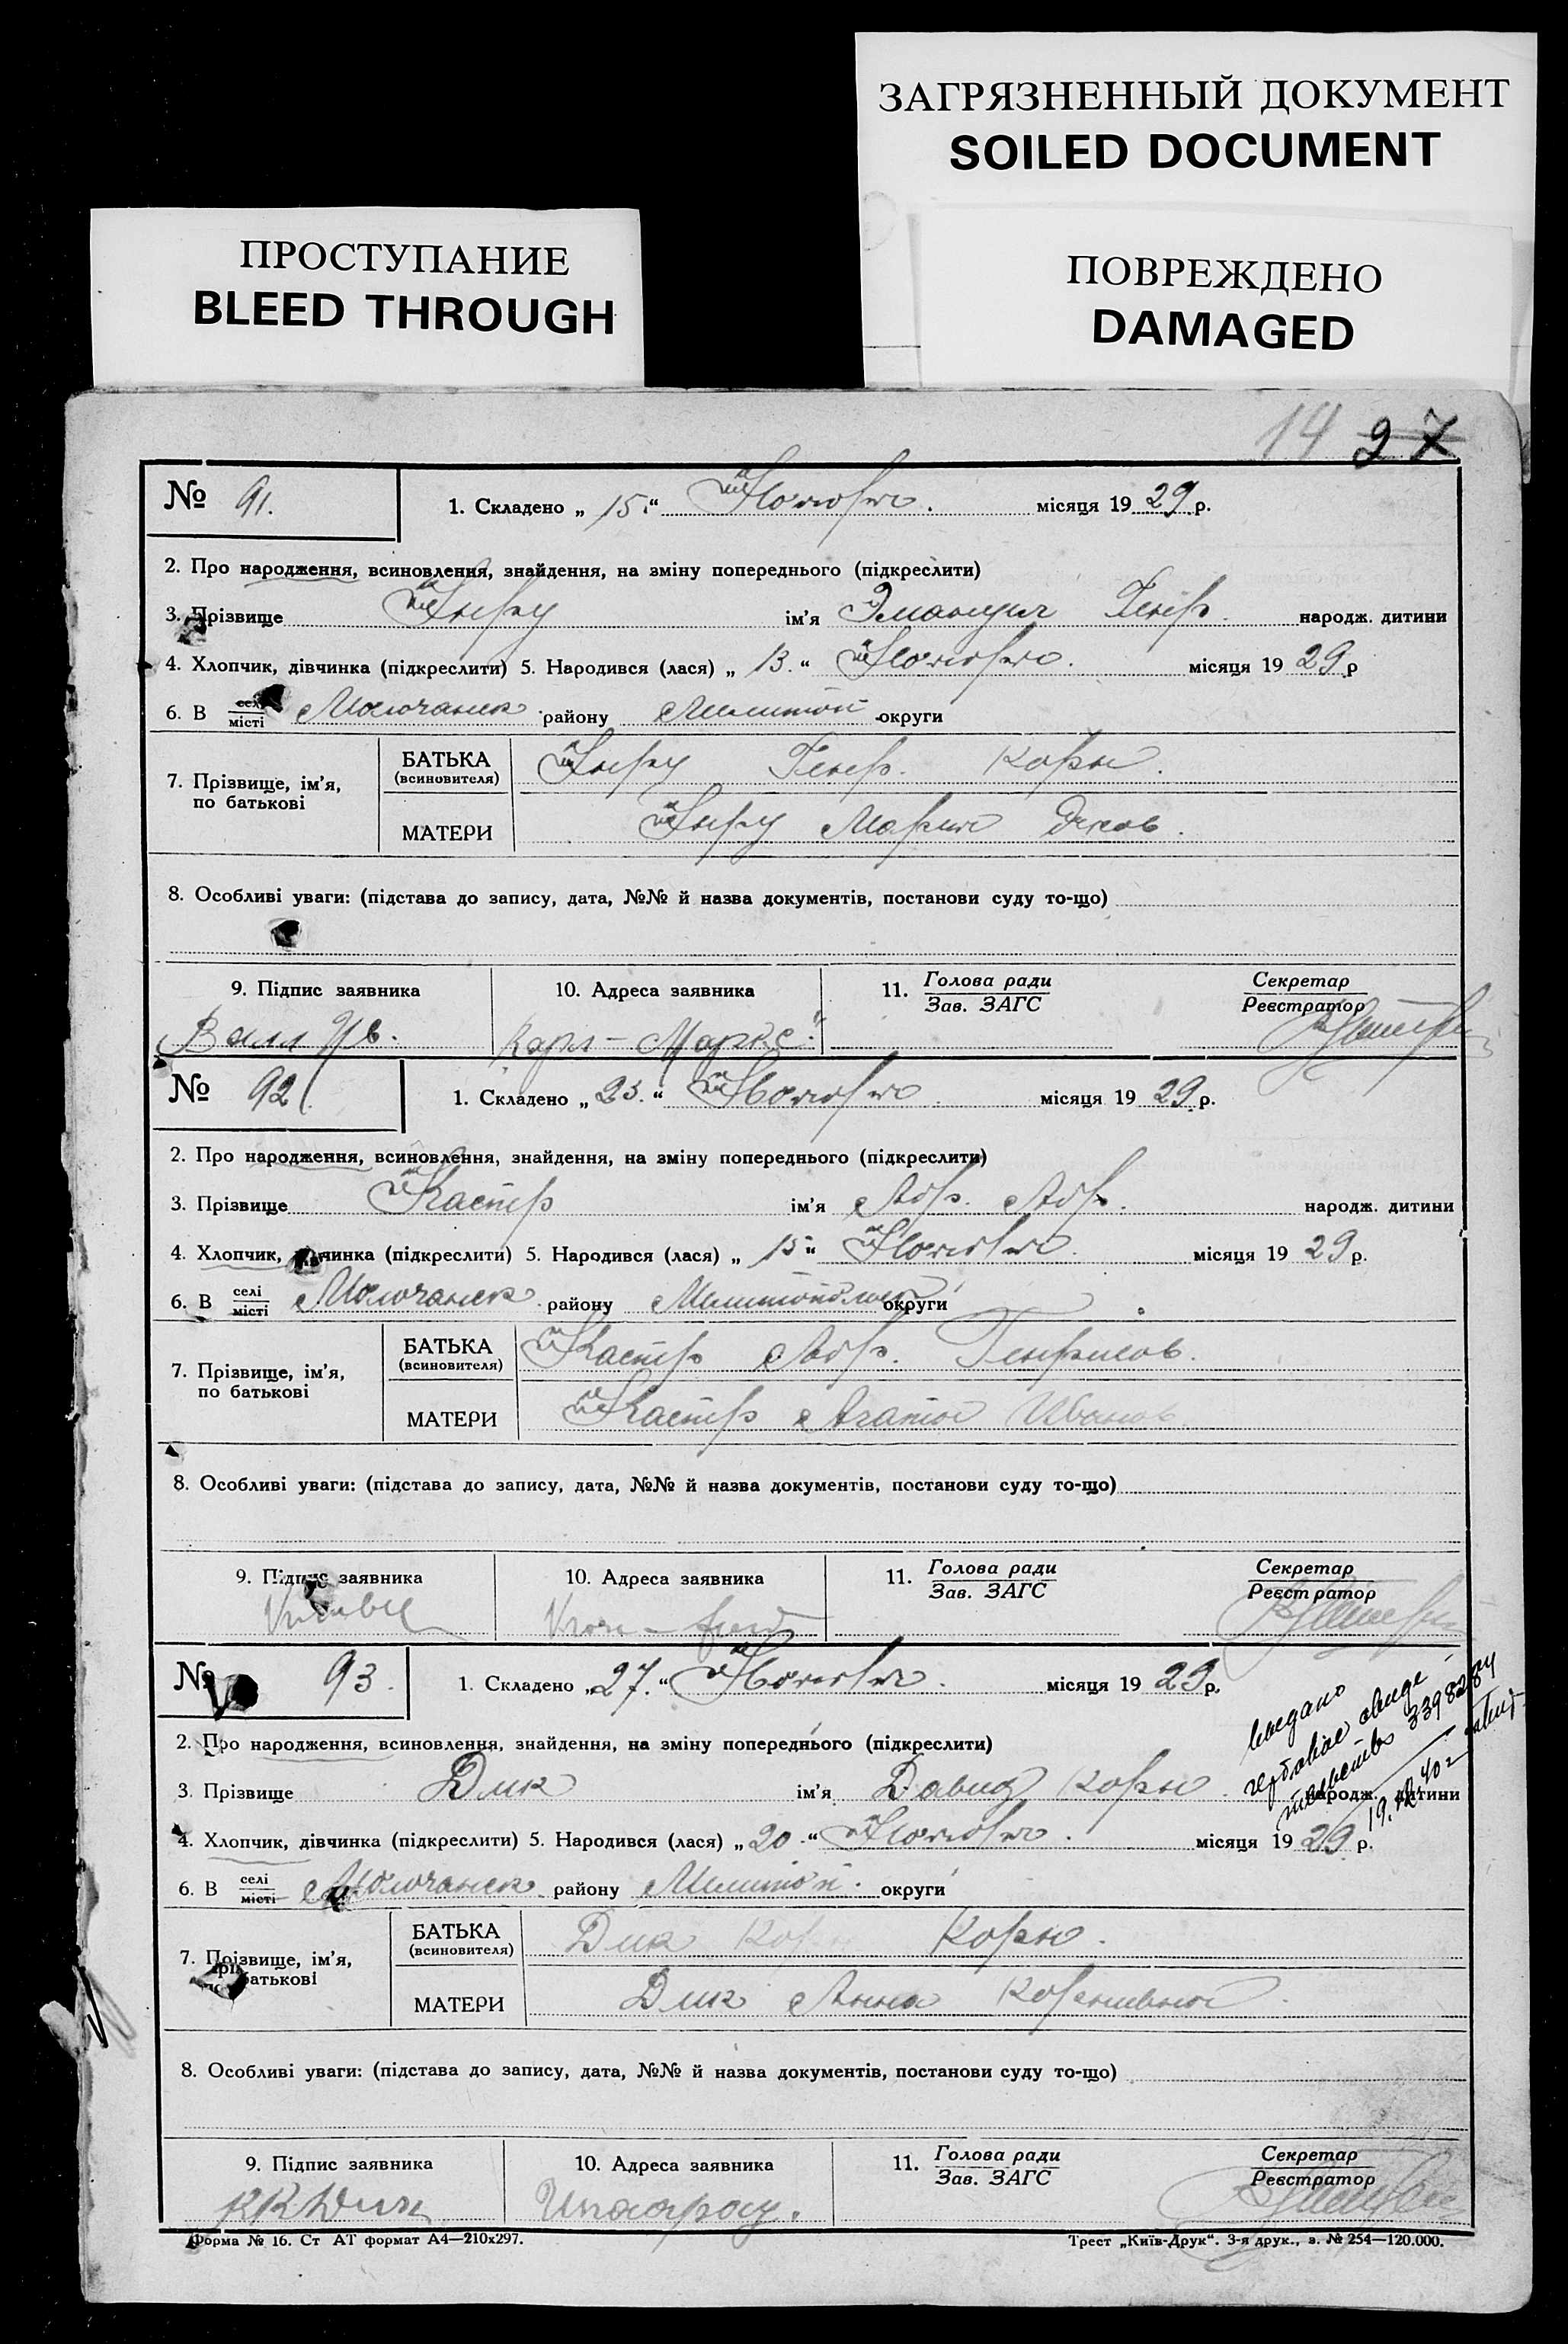 ЗАГРЯЗНЕННЫЙ ДОКУМЕНТ
SOILED DOCUMENT
ПРОСТУПАНИЕ
BLEED THROUGH
ПОВРЕЖДЕНО
DAMAGED
14 27
№ 91. 1. Складено „ 15 “ місяця 19 29 р.
2. Про народження, всиновлення, знайдення, на зміну попереднього (підкреслити)
3. Прізвище ім'я Генр. народж. дитини
4. Хлопчик, дівчинка (підкреслити) 5. Народився (лася) „ 13. “ місяця 19 29 р
6. В селі місті Молочанск району Мелитоп округи
7. Прізвище, ім'я, по батькові БАТЬКА (всиновителя) Генр. Корн.
МАТЕРИ Мария Яков.
8. Особливі уваги: (підстава до запису, дата, №№ й назва документів, постанови суду то-що)
9. Підпис заявника 10. Адреса заявника 11. Голова ради Зав. ЗАГС Секретар Реєстратор
Валл Ив. Карл-Маркс
№ 92 1. Складено „ 23. “ місяця 19 29 р.
2. Про народження, всиновлення, знайдення, на зміну попереднього (підкреслити)
3. Прізвище Кастер ім'я Абр. Абр. народж. дитини
4. Хлопчик, дівчинка (підкреслити) 5. Народився (лася) „ 15 “ місяця 19 29 р.
6. В селі місті Молочанск району округи
7. Прізвище, ім'я, по батькові БАТЬКА (всиновителя) Кастер Абр. Генрихов.
МАТЕРИ Кастер Агата Иванов
8. Особливі уваги: (підстава до запису, дата, №№ й назва документів, постанови суду то-що)
9. Підпис заявника 10. Адреса заявника 11. Голова ради Зав. ЗАГС Секретар Реєстратор
№ 93. 1. Складено „ 27. “ місяця 19 29 р.
2. Про народження, всиновлення, знайдення, на зміну попереднього (підкреслити)
3. Прізвище Дик ім'я Давид Корн народж. дитини
выдано
гербовое свиде
тельство 339828
19.
4. Хлопчик, дівчинка (підкреслити) 5. Народився (лася) „ 20 “ місяця 19 29 р.
6. В селі місті Молочанск району Мелитоп. округи
7. Прізвище, ім'я, по батькові БАТЬКА (всиновителя) Дик Корн Корн.
МАТЕРИ Дик Анна Корнеевна
8. Особливі уваги: (підстава до запису, дата, №№ й назва документів, постанови суду то-що)
9. Підпис заявника 10. Адреса заявника 11. Голова ради Зав. ЗАГС Секретар Реєстратор
Форма № 16. Ст АТ формат А4—210х297. Трест „Київ-Друк“. 3-я друк., з. № 254—120.000.